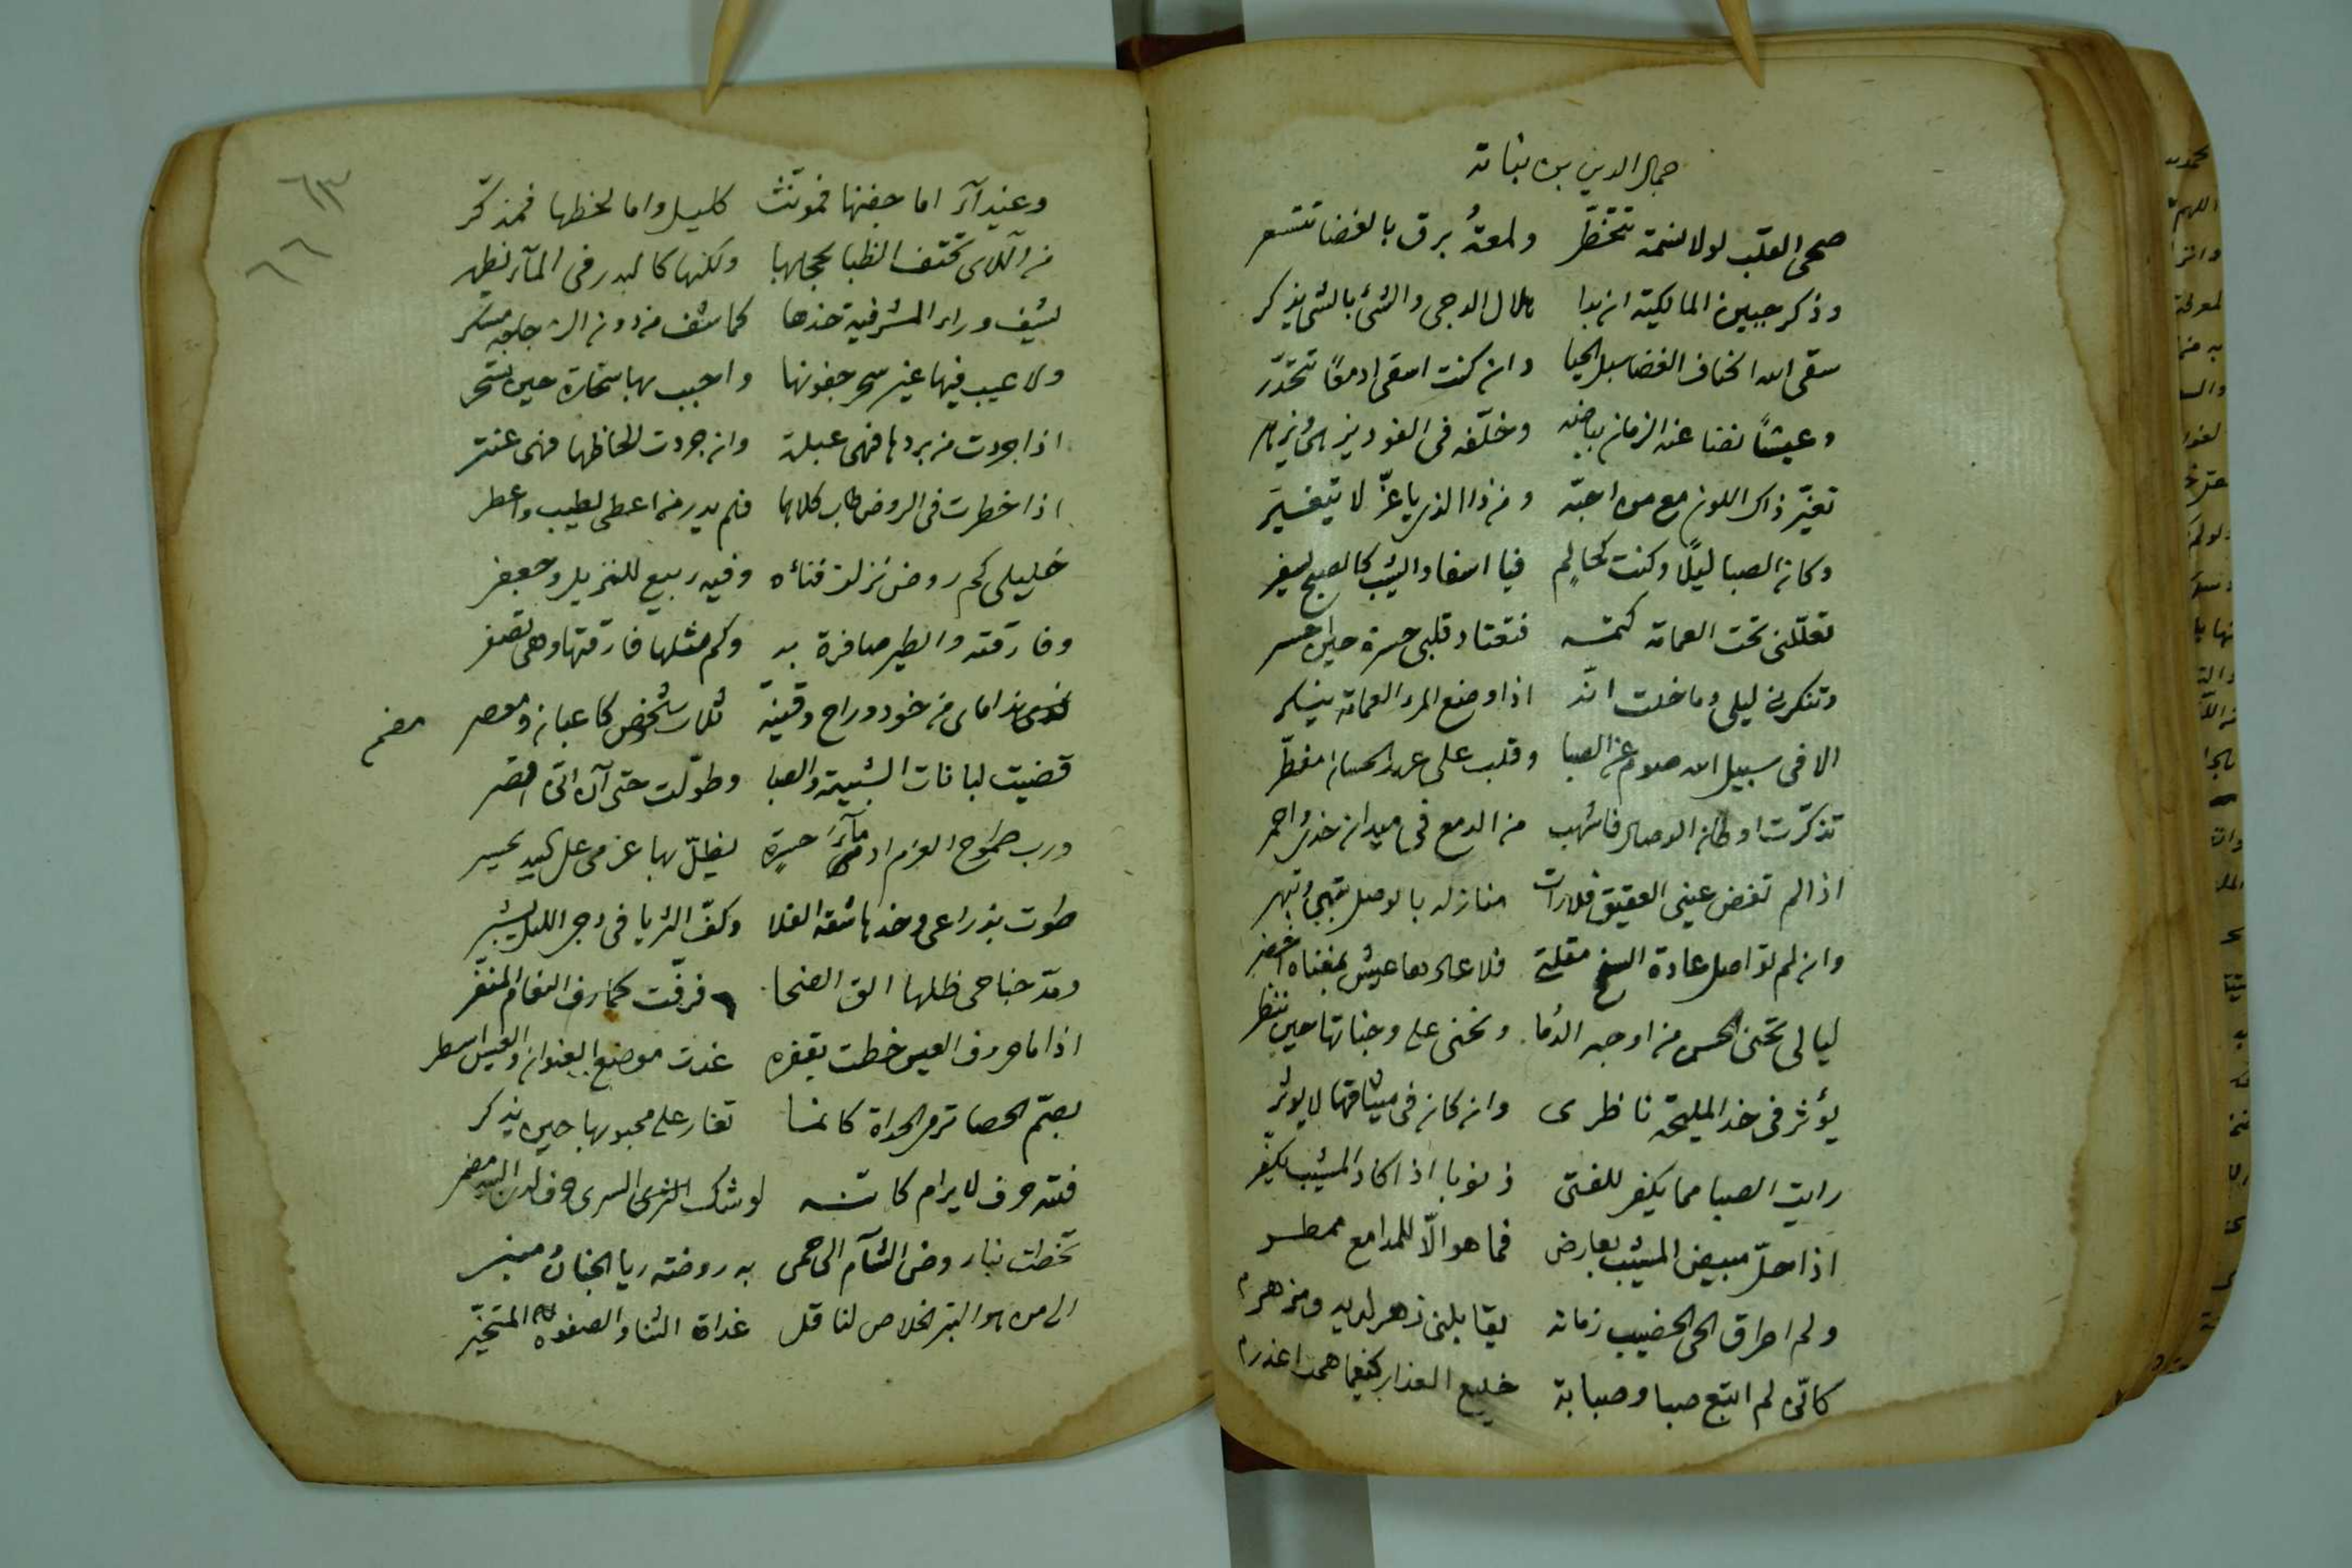 جمال الدين بن نباتة
صحى القلب لولا نسمة تتخطّر ولمعةُ برق بالغضا تتسعر
وذكر جبين المالكية ان بدا هلال الدجى والشئ بالشئ يذكر
سقى الله اكناف الغضا سبل الحيا وان كنت اسقى ادمعًا تتحدّر
وعيشًا نضا عنه الزمان بياضه وخلّفه فى الفود يزهى ويزهر
تغيّر ذاك اللون مع من احبّه ومن ذا الذى يا عزّ لا يتغيّر
وكان الصبا ليلًا وكنت كحالم فيا اسفا والشيب كالصبح يسفر
تعلّلنى تحت العمامة كتمه فتعتاد قلبى حسرة حين احسر
وتنكرنى ليلى وما خلت انّه اذا وضع المرء العمامة ينكر
الا فى سبيل الله صوم عن الصبا وقلب على عهد الحسان مفطّر
تذكّرت اوطان الوصال فاشهب من الدمع فى ميدان خدى واحمر
اذا لم تفض عينى العقيق فلا رات منازله بالوصل تبهى وتبهر
وان لم تواصل عادة السفح مقلتى فلا عادها عيش بمغناه اخضر
ليالى تجنى الحسن من اوجه الدما وتجنى على وجناتها حين تنظر
يؤثر فى خد المليحة ناظرى وان كان فى ميثاقها لا يوثر
رايت الصبا مما يكفر للفتى ذنوبا اذا كان المشيب يكفّر
اذا حلّ مبيض المشيب بعارض فما هو الّا للمدامع ممطر
ولم اطرق الحى الخصيب زمانه يقابلنى زهر لديه ومزهر
كانّى لم اتبع صبا وصبابة خليع العذار كيفما همت اعذر
٦٣
٦٦
وغيدآء اما جفنها فمونّث كليل واما لحظها فمذكّر
من اللاى تختف الظبا بحجابها ولكنها كالبدر فى المآء يظهر
يشف وراء المشرفية خدها كما شف من دون الزجاجة مسكر
ولا عيب فيها غير سحر جفونها واحبب بها سحّارة حين تسحر
اذا جردت من بردها فهى عبلة وان جردت الحاظها فهى عنتر
اذا خطرت فى الروض طاب كلاهما فلم يدر من اعطى لطيب واعطر
خليلى كم روض نزلت فنائه وفيه ربيع للنزيل وجعفر
وفارقته والطير صافرة به وكم مثلها فارقتها وهى تصفر
نداماى من خود وراح وقينة ثلاث شخوص كاعبان ومعصر
قضيت لبانات الشبيبة والصبا وطوّلت حتى آن انى اقصر
ورب طموح العزم ادماء جسرة يظلّ بها عزمى على البيد يجسر
طوت بذراعى وخدها شقة الفلا وكفّ الثريا فى دجى الليل يشبر
ومدّ جناحى ظلها الق الضحا فرفّت كما رف النعام المنفّر
اذا ما حروف العيس خطت بقفره غدت موضع العنوان والعيس اسطر
بصمّ الحصا ترمى الحداة كانما تغار على محبوبها حين يذكر
فلله حرف لا يرام كانّه لوشك السرى حرف لدى البيد مضمر
تخطت بنا روض الشآم الى حمى به روضة ريا الجنان ومنبر
الى من هو التبر الخلاص لناقل غداة الثنا والصفوة المتخيّر